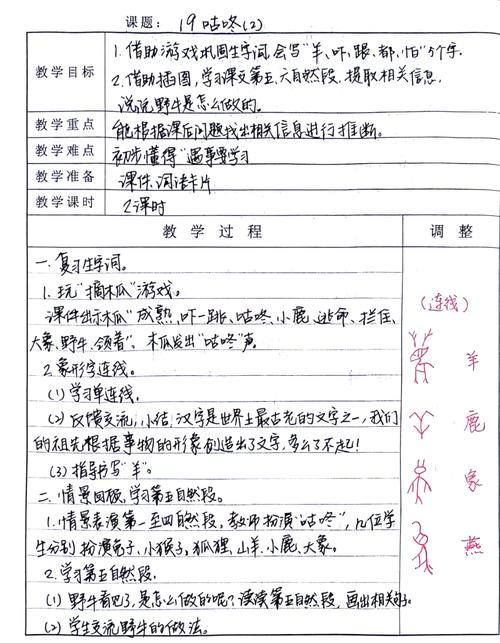 课题: 19 咕咚(2)
教学目标
1. 借助游戏巩固生字词,会写"羊、吓、跟、都、怕"5个字.
2. 借助插图,学习课文第五、六自然段,提取相关信息,
说说野牛是怎么做的。
教学重点 能根据课后问题找出相关信息进行推断。
教学难点 初步懂得"遇事要学习
教学准备 课件、词语卡片
教学课时 2课时
教学过程 调整
一. 复习生字词。
1. 玩"摘木瓜"游戏。
课件出示木瓜"成熟、吓一跳、咕咚、小鹿、逃命、拦住、
大象、野牛、领着"、木瓜发出"咕咚"声。
2. 象形字连线。
(1) 学习单连线。
(2) 反馈交流,小结:汉字是世界上最古老的文字之一,我们
的祖先根据事物的形象创造出了文字,多么了不起!
(3) 指导书写"羊"。
二. 情景回顾,学习第五自然段。
1. 情景表演第一至四自然段,教师扮演"咕咚",几位学
生分别扮演兔子、小猴子、狐狸、山羊、小鹿、大象。
2. 学习第五自然段.
(1) 野牛看见了,是怎么做的呢?读读第五自然段,画出相关句。
(2) 学生交流野牛的做法。
(连线)
羊
鹿
象
燕